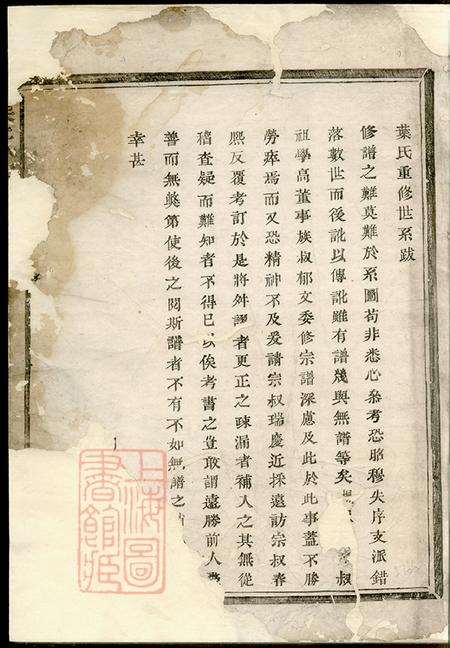 葉氏重修世系跋
修譜之難莫難於系圖苟非悉心叅考恐昭穆失序支派錯
落數世而後訛以傳訛雖有譜幾與無譜等矣 叔
祖學高董事族叔郁文委修宗譜深慮及此於此事蓋不勝
勞瘁焉而又恐精神不及爰請宗叔瑞慶近採遠訪宗叔春
熙反覆考訂於是將舛謬者更正之疎漏者補入之其無從
稽查疑而難知者不得已以俟考書之豈敢謂遠勝前人
善而無獘第使後之閱斯譜者不有不如無譜之
幸甚
上海圖
書館藏